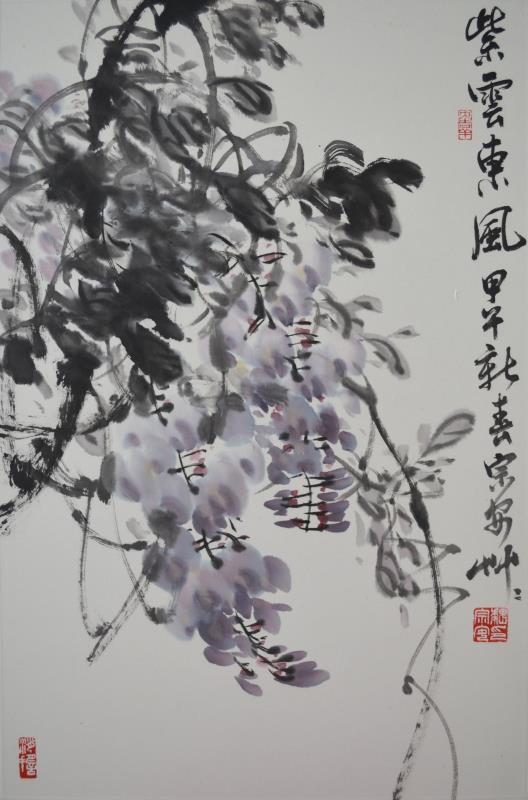 紫雲東風甲午新春宗安艸